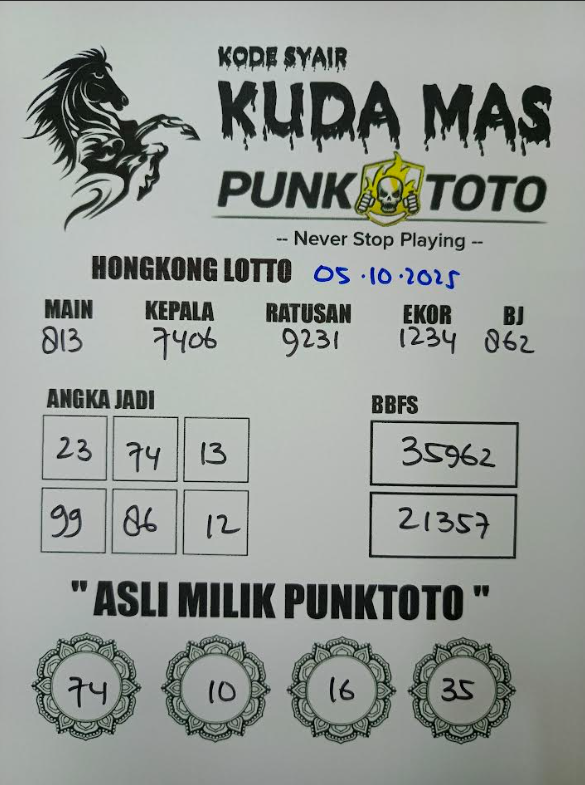 KODE SYAIR
KUDA MAS
PUNK TOTO
-- Never Stop Playing --
HONGKONG LOTTO 05.10.2025
MAIN KEPALA RATUSAN EKOR BJ
813 7406 9231 1234 862
ANGKA JADI BBFS
23 74 13 35962
99 86 12 21357
" ASLI MILIK PUNKTOTO "
74 10 16 35